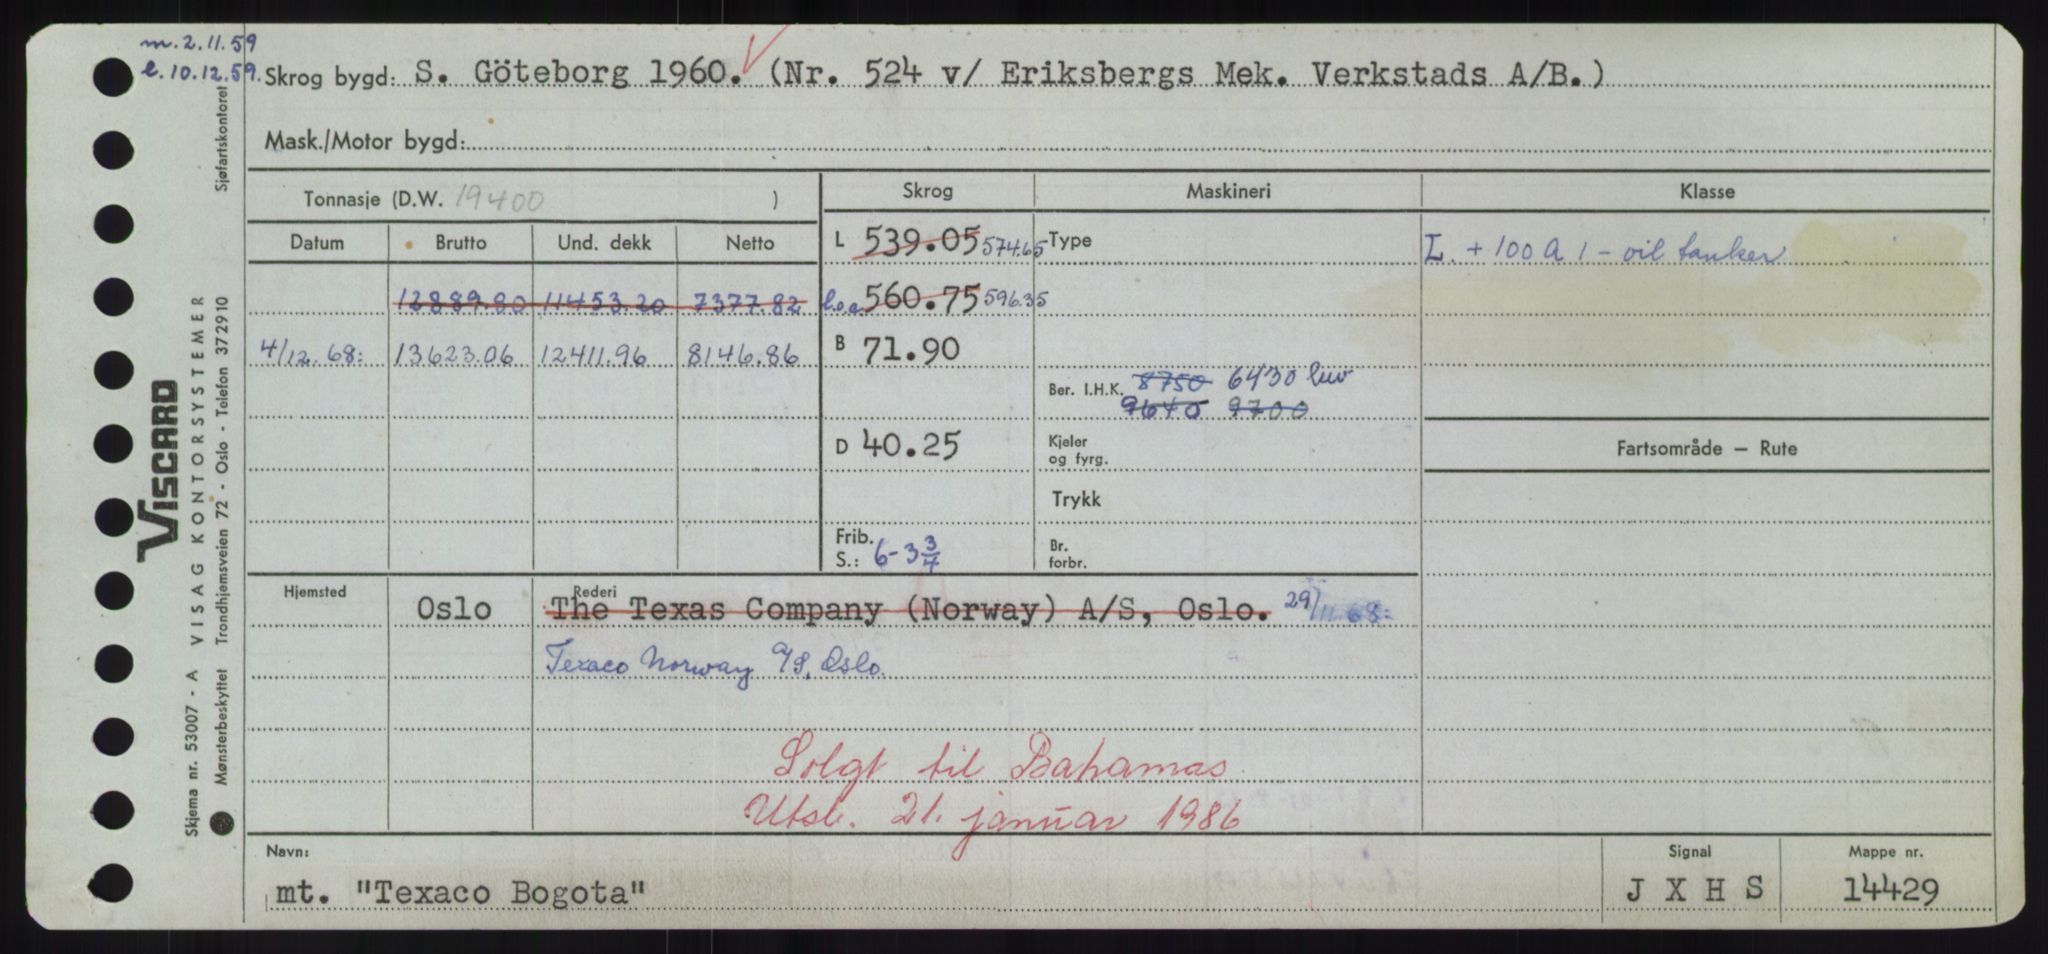 m. 2.11.59
l. 10.12.59.
Skrog bygd: S. Göteborg 1960. (Nr. 524 v/ Eriksbergs Mek. Verkstads A/B.)
Mask./Motor bygd:
Tonnasje (D.W. 19400 )
Skrog
Maskineri
Klasse
Datum Brutto Und. dekk Netto
L 539.05 574.65
Type
L. + 100 A 1 - oil tanker
12889.80 11453.20 7377.82
l.o.a. 560.75 596.35
4/12.68: 13623.06 12411.96 8146.86
B 71.90
Ber. I.H.K. 8750 6430 luv
9640 9700
D 40.25
Kjeler
og fyrg.
Fartsområde — Rute
Trykk
Frib.
S.: 6-3 3/4
Br.
forbr.
Hjemsted Oslo
Rederi
The Texas Company (Norway) A/S, Oslo. 29/11.68:
Texaco Norway A/S, Oslo.
Solgt til Bahamas
Utsl. 21. januar 1986
Navn:
mt. "Texaco Bogota"
Signal
J X H S
Mappe nr.
14429
VISCARD
Skjema nr. 53007 - A VISAG KONTORSYSTEMER
Mønsterbeskyttet Trondhjemsveien 72 - Oslo - Telefon 372910 Sjøfartskontoret